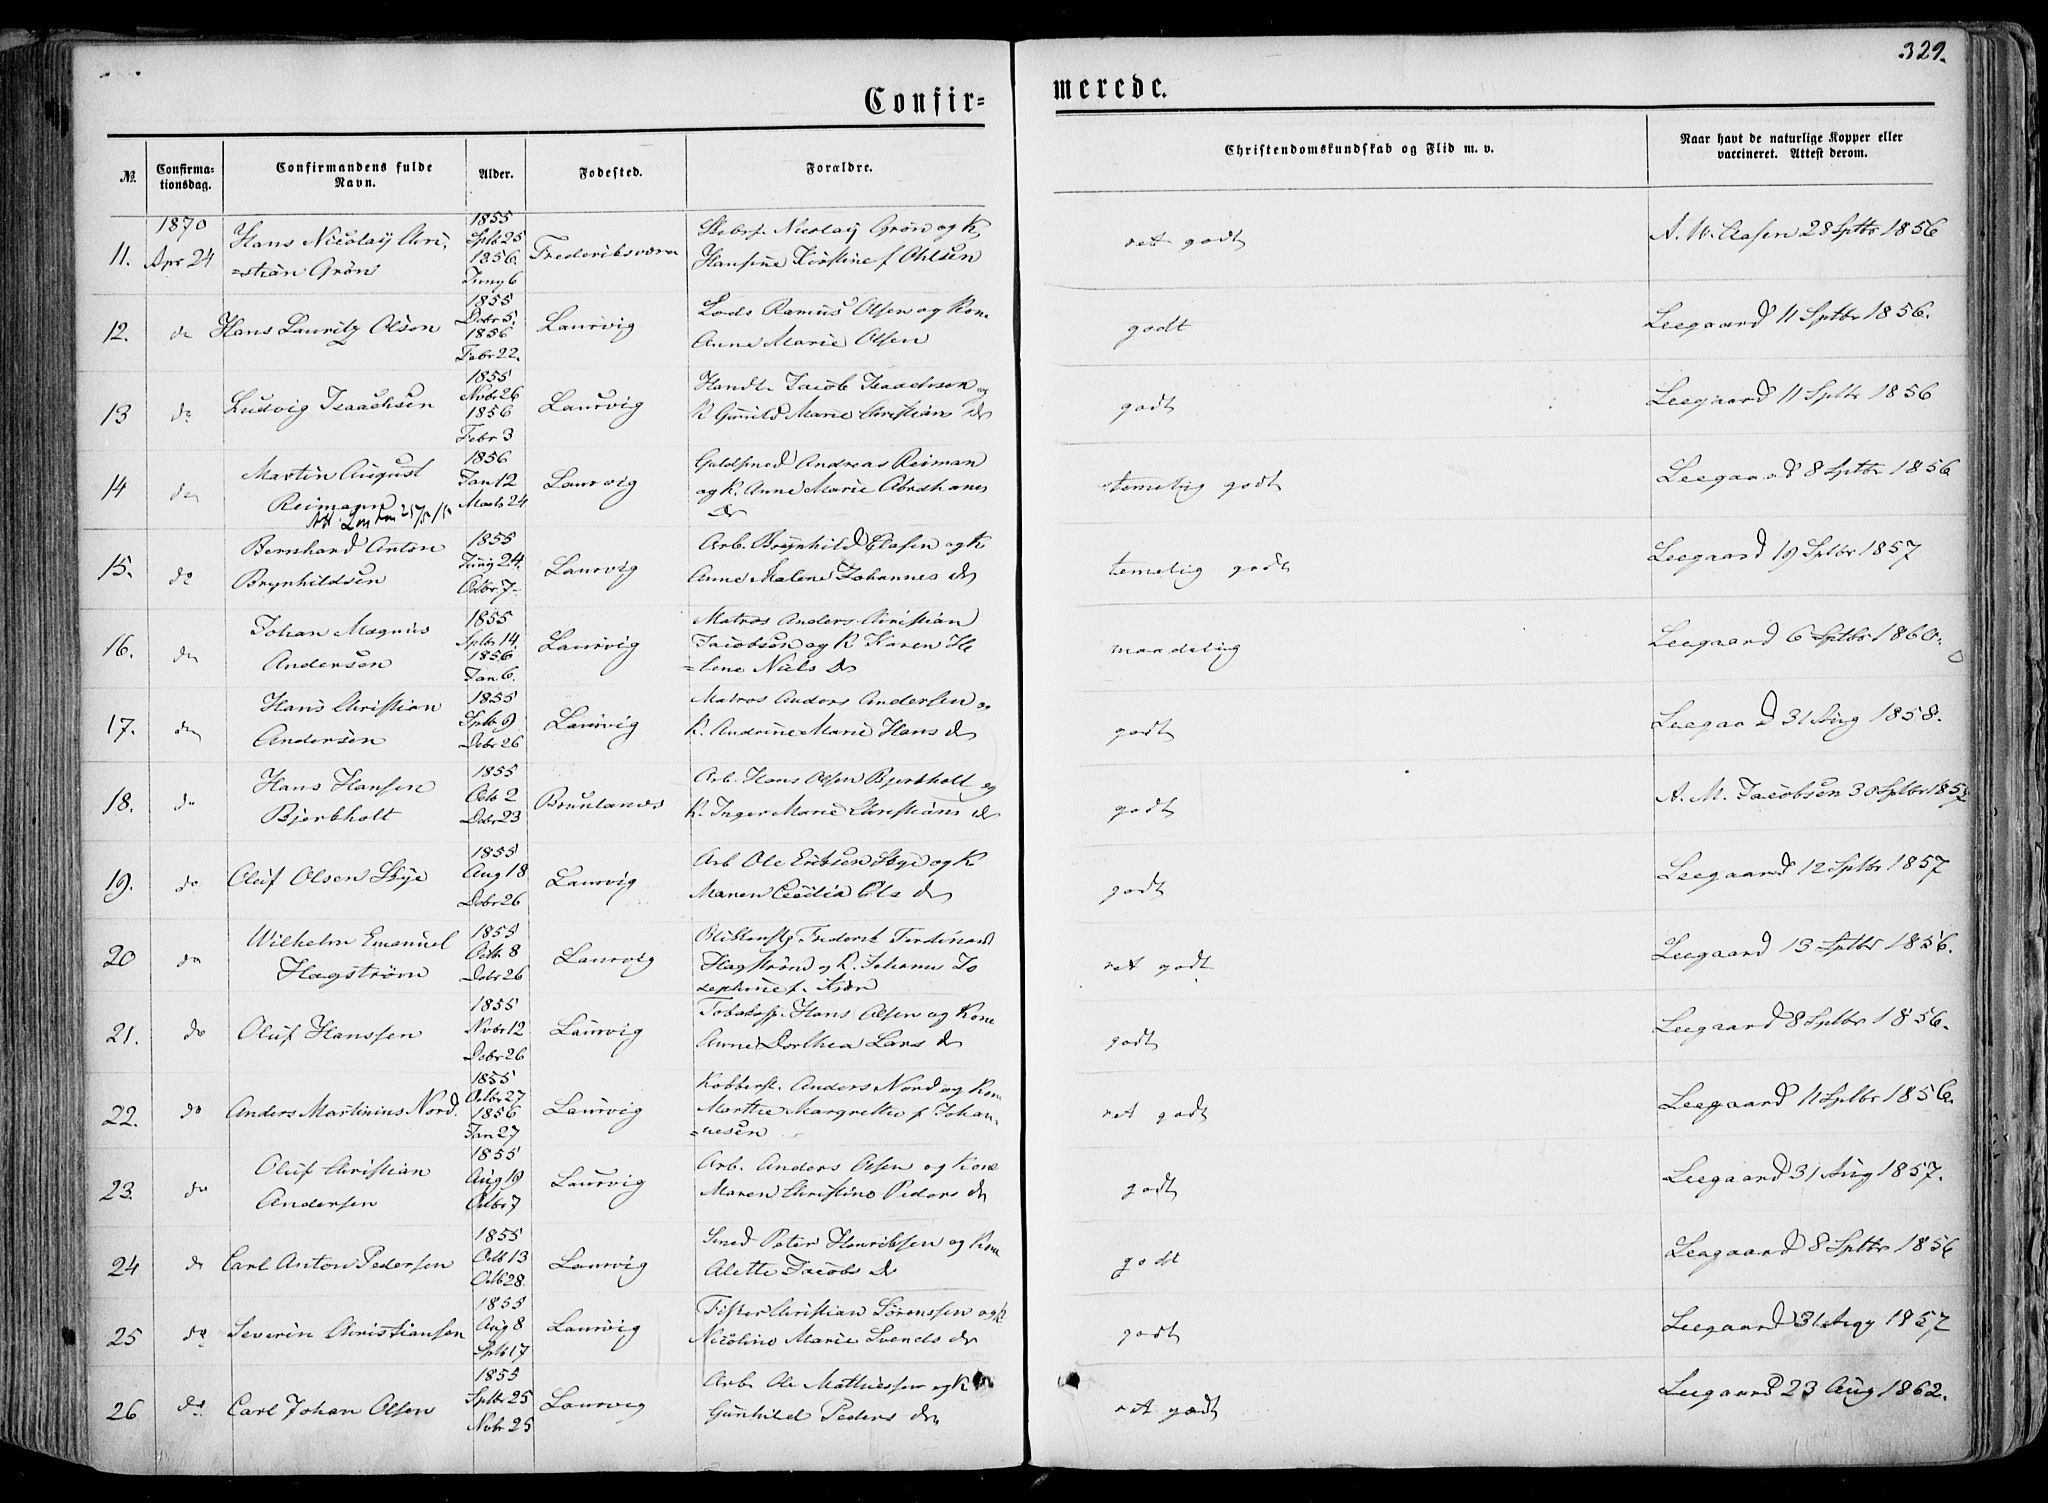 329.
Confir=
merede.
№.
Confirma-
tionsdag.
Confirmandens fulde
Navn.
Alder.
Fødested.
Forældre.
Christendomskundskab og Flid m. v.
Naar havt de naturlige Kopper eller
vaccineret. Attest derom.
11.
1870
Apr 24
Hans Nicolay Chri-
=stian Grøn
1855
Sptb 25
1856.
Juny 6
Frederiksværn
Nicolay Grøn og K.
Hansine Kirstine f Ohlsen
ret godt
28 Sptbr 1856
12.
do
Hans Lauritz Olson
1855
Dcbr 5.
1856
Febr 22.
Laurvig
Lods Ramus Olsen og Kone
Anne Marie Olsen
godt
Leegaard 11 Sptbr 1856.
13
do
Ludvig Isaachsen
1855
Nvbr 26
1856
Febr 3
Laurvig
Handl. Jacob Isaachsen og
K Gunild Marie Christians dr
godt
Leegaard 11 Sptbr 1856
14
do
Martin August
Reimann
1856
Jan 12
Marts 24
Laurvig
Guldsmed Andreas Reiman
og K. Anne Marie Abrahams
dr
temelig godt
Leegaard 8 Sptbr 1856
15.
do
Bernhard Anton
Brynhildsen
1855
Juny 24.
Octbr 7.
Laurvig
Arb. Brynhild Olafsen og K
Anne Malene Johannes dr
temelig godt
Leegaard 19 Sptbr 1857
16.
do
Johan Magnus
Andersen
1855
Sptbr 14.
1856
Jan 6.
Laurvig
Matros Anders Christian
Jacobsen og K Karen He
=lene Niels dr
maadelig
Leegaard 6 Sptbr 1860.
17.
do
Hans Christian
Andersen
1855
Sptb 9
Dcbr 26
Laurvig
Matros Anders Andersen og
K. Andrine Marie Hans dr
godt
Leegaard 31 Aug 1858.
18.
do
Hans Hansen
Bjerkholt
1855
Octb 2
Dcbr 23
Brunlanæs
Arb. Hans Olsen Bjerkholt og
K. Inger Marie Christians dr
godt
A. M. Jacobsen 30 Sptbr 1857
19.
do
Oluf Olsen Skye
1855
Aug 18
Dcbr 26
Laurvig
Arb Ole Eriksen Skye og K
Maren Cecilia Ols dr
godt
Leegaard 12 Sptbr 1857
20
do
Wilhelm Emanuel
Hagstrøm
1855
Octb 8
Dcbr 26
Laurvig
Frederik Ferdinand
Hagstrøm og K. Johanne Jo
sephine f. Kjær
ret godt
Leegaard 13 Sptbr 1856.
21.
do
Oluf Hanssen
1855
Nvbr 12
Dcbr 26
Laurvig
Hans Olsen og Kone
Anne Dorthea Lars dr
godt
Leegaard 8 Sptbr 1856.
22.
do
Anders Martinius Nord.
1855
Octbr 27
1856
Jan 27
Laurvig
Kobberst. Anders Nord og Kone
Marthe Margrethe f Johan-
=nesen
ret godt
Leegaard 11 Sptbr 1856.
23.
do
Oluf Christian
Andersen
1855
Aug 19
Octbr 7
Laurvig
Arb. Anders Olsen og Kone
Maren Christine Peders dr
godt
Leegaard 31 Aug 1857.
24
do
Carl Anton Pedersen
1855
Octb 13
Octb 28.
Laurvig
Smed Peter Henriksen og Kone
Alette Jacobs dr
godt
Leegaard 8 Sptbr 1856
25
do
Severin Christiansen
1855
Aug 8
Sptb 17
Laurvig
Fisker Christian Sørenssen og K
Nicoline Marie Svends dr
godt
Leegaard 31 Aug 1857
26
do.
Carl Johan Olsen
1855
Sptbr 25
Nvbr 25
Laurvig
Arb. Ole Mathiessen og K
Gunhild Peders dr
ret godt
Leegaard 23 Aug 1862.